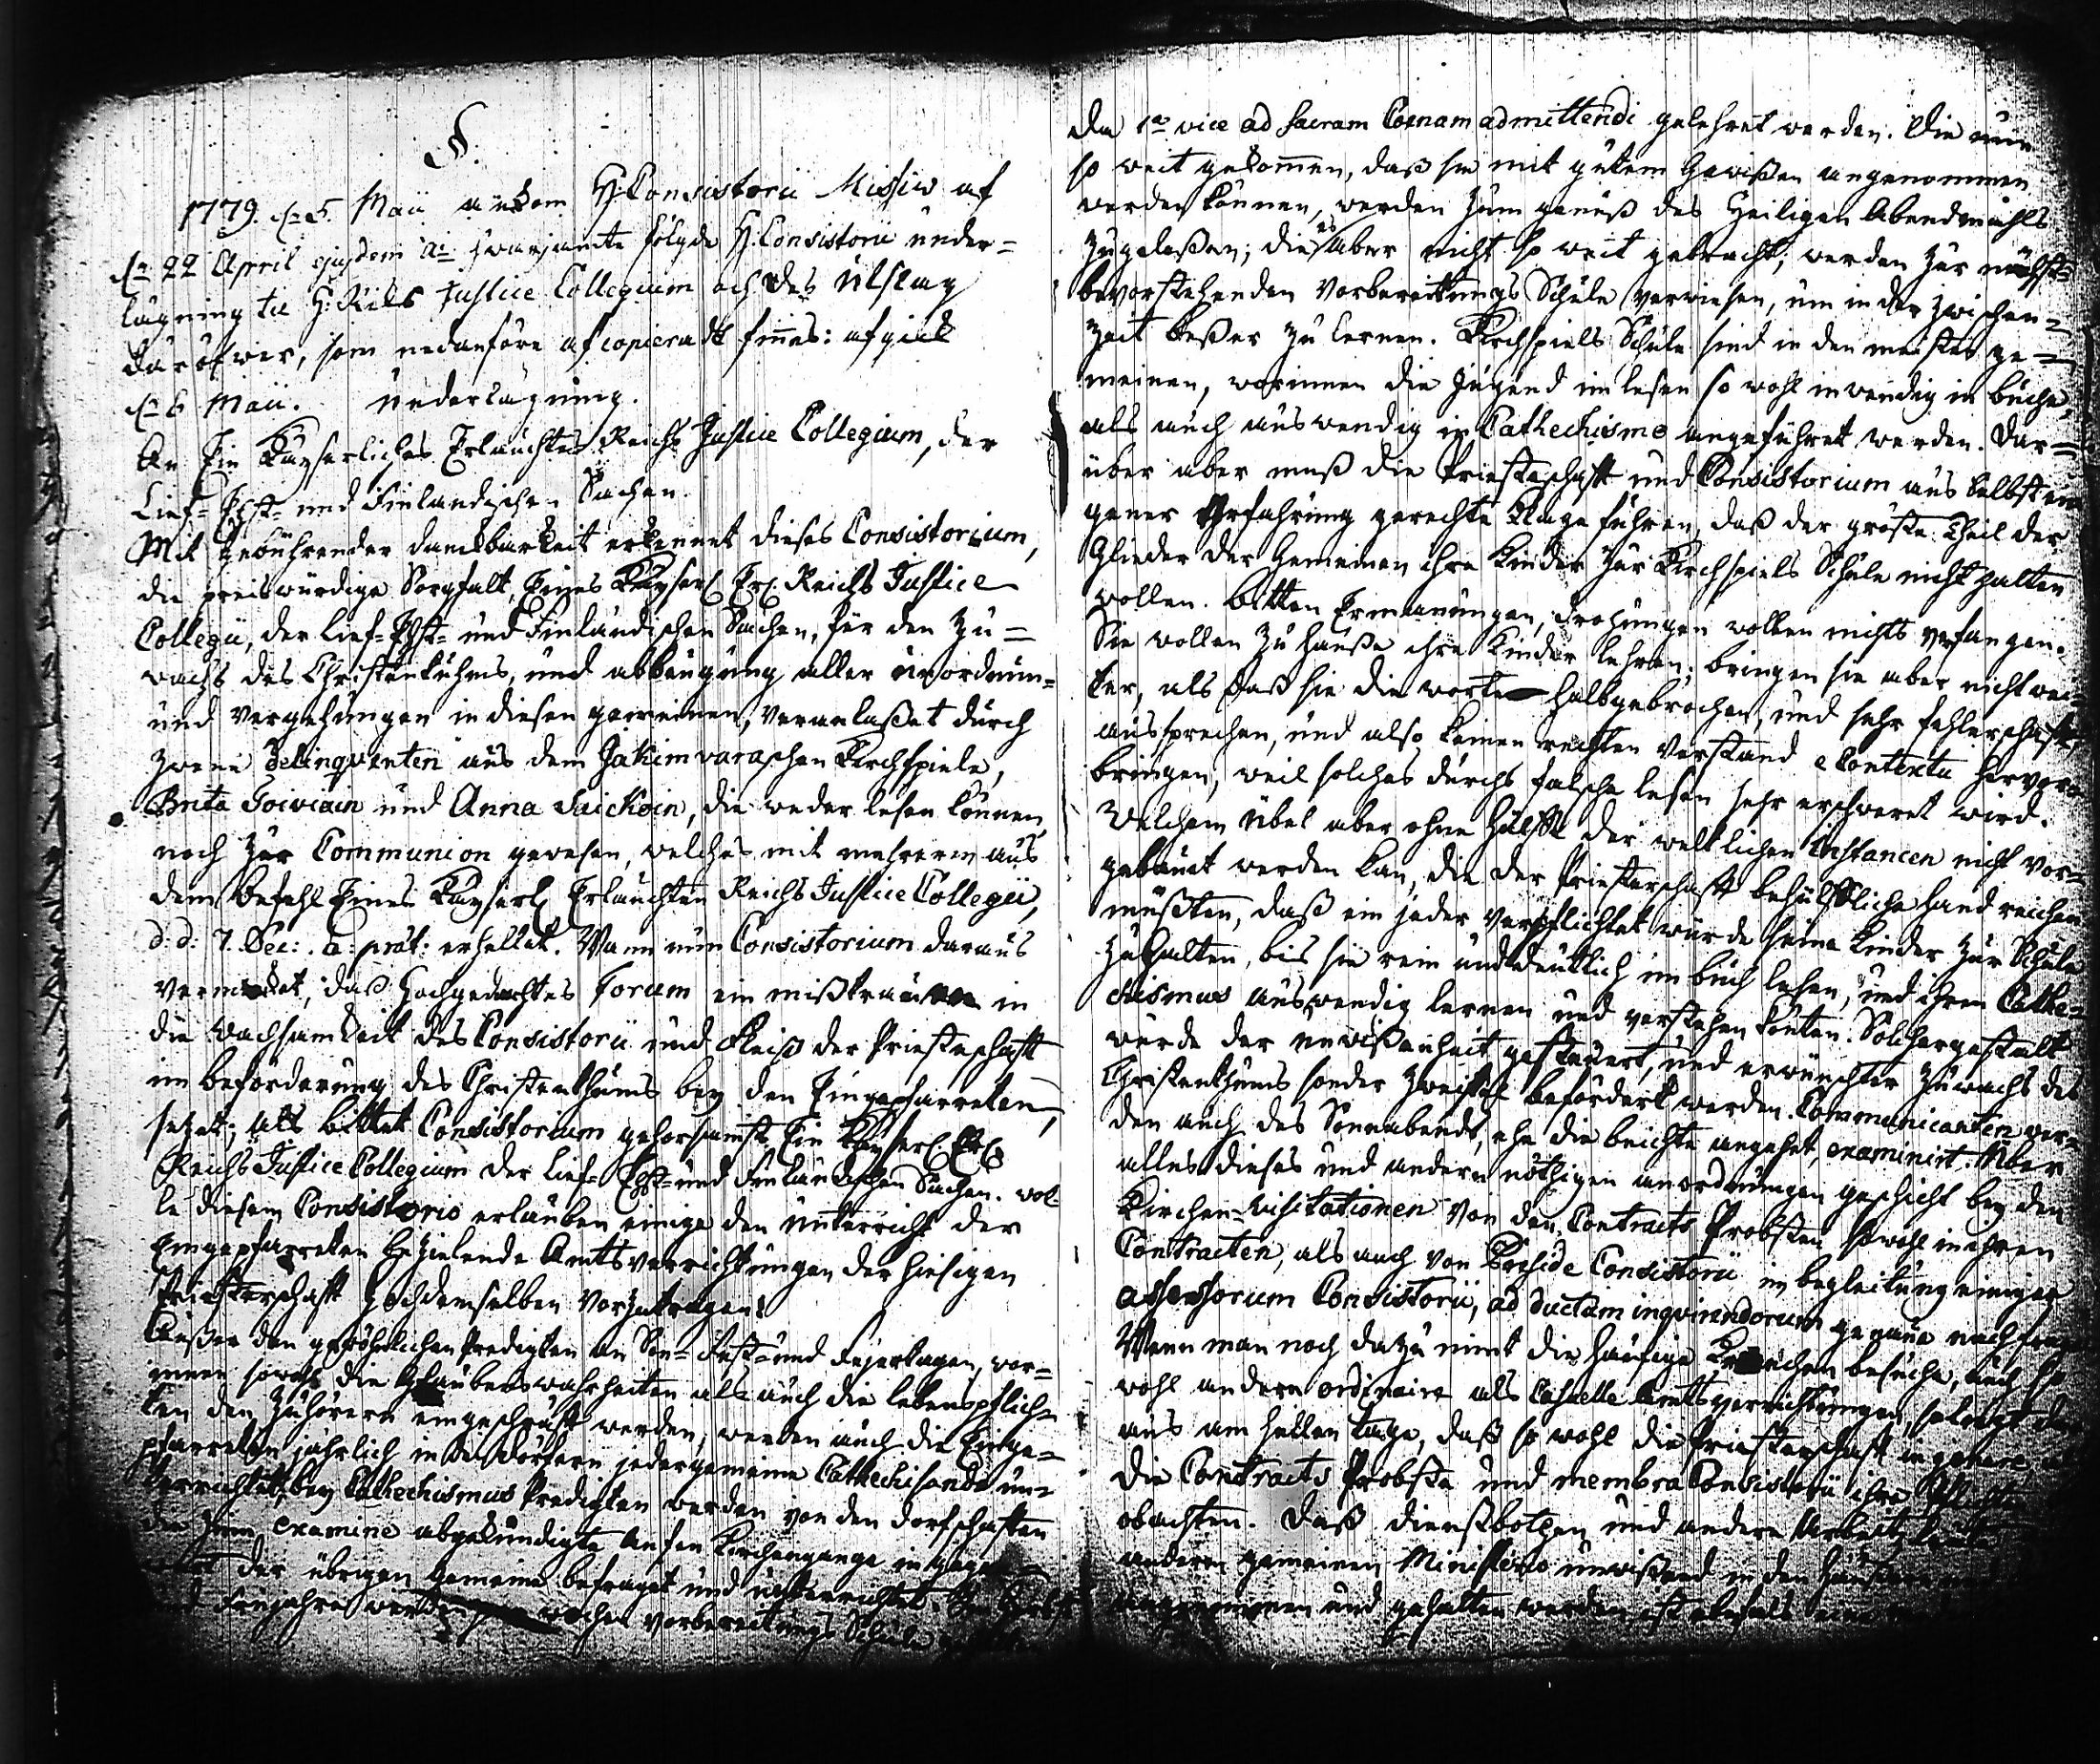 §.
1779. d: 5. Maii ankom H: Consistorii Missiv af
d: 22 April ejusdem a: hvarjemte följde H: Consistorii under=
lägning til H: Riks Justice Collegium och des utslag
däröfver, som nedanföre afcopieradt finnes: afgick
d: 6 Maii. Underlägning.
An Ein Kayserliches Erlauchtes Reichs Justice Collegium, der
Lief- Ehst- und Finlandischen Sachen.
Mit gebührender danckbarkeit erkennet dieses Consistorium,
die preiswürdige Sorgfalt, Eines Kayserl Erl Reichs Justice
Collegii, der Lief- Ehst- und Finländischen Sachen, für den Zu=
wachs des Christenthums, und abbeugung aller unordnun=
und vergehungen in diesen gemeinen, veranlaßet durch
zweene Delinqventen aus dem Jakimvaraschen Kirchspiele,
Brita Toiviain und Anna Saickoin, die weder lesen können,
noch zur Communion gewesen, welches mit mehrerem aus
dem befehl Eines Kayserl Erlauchten Reichs Justice Collegii,
d: d: 7. Dec: a: præt: erhellet. Wann nun Consistorium daraus
vermercket, daß Hochgedachtes Forum ein mißtrauen in
die wachsamkeit des Consistorii und Fleiß der Priesterschafft
im beförderung des Christenthums bey den Eingepfarreten,
setzet; als bittet Consistorium gehorsamst, Ein Kayserl Erl
Reichs Justice Collegium der Lief- Ehst- und Finländischen Sachen. wol-
le diesem Consistorio erlauben einige den unterricht der
Eingepfarreten bezielende Amtsverrichtungen der hiesigen
Priesterschafft Hochdemselben vorzutragen.
Außer den gewöhnlichen Predigten an Son- Fest- und Feyertagen, wor=
innen sowohl die Glaubenswahrheiten als auch die lebenspflich=
ten den Zuhörern eingeschärft werden, werden auch die Einge=
pfarreten jährlich in den Dörfern jeder gemeine Cathechisando un=
terrichtet, bey Cathechismus Predigten werden von den dorfschafften
die zum examine abgekündigte An den Kirchengange in gegen
der übrigen Gemeine befraget und unterrichtet. Im Herbst
und Frujahre werden wochen vorbereitungs Schule
da 1a vice ad sacram Coenam admittendi gelehret werden. Die nun
so weit gekommen, daß sie mit gutem Gewißen angenommen
werden können, werden zum genuß des Heiligen Abendmahls
zugelaßen; die es aber nicht so weit gebracht, werden zur nächst=
bevorstehenden Vorbereitungs Schule verwiesen, um in der zwischen=
zeit beßer zu lernen. Kirchspiels Schule sind in den meisten ge=
meinen, worinnen die Jugend im lesen so wohl inwendig im buche,
als auch auswendig in Cathechismo angeführet werden. Dar=
über aber muß die Priesterschafft und Consistorium aus selbst ei
gener Erfahrung gerechte klage führen, daß der größte Theil der
Glieder der Gemeinen ihre Kinder zur Kirchspiels Schule nicht halten
wollen. bitten Ermanungen, drohungen wollen nichts verfangen.
Sie wollen zu hauße ihre Kinder lehren; bringen sie aber nicht wei=
ter, als daß sie die worte halbgebrochen, und sehr fehlerhafft
aussprechen, und also keinen rechten verstand e Contextu hervor=
bringen, weil solches durchs falsche lesen sehr erschweret wird.
Welchem übel aber ohne hülffe der weltlichen instancen nicht vor=
gebauet werden kan, die der Priesterschafft behülffliche hand reichen
müßten, daß ein jeder verpflichtet würde seine Kinder zur Schule
zu halten, bis sie rein und deutlich im buch lesen, und ihren Cathe=
chismus auswendig lernen und verstehen könten. Solchergestalt
würde der unwißenheit gesteuert, und erwünschter zuwachs des
Christenthums sonder zweifel befördert werden. Communicanten wer=
den auch des Sonnabends, ehe die beichte angehet, examinirt. Über
alles dieses und andern nöthigen anordnungen geschicht bey den
Kirchen-visitationen von den Contracts Probsten sowohl in ihren
Contracten, als auch von Præside Consistorii in begleitung einiger
assessorum Consistorii, ad ductam inqvirendorum genaue nachfrage
Wenn man noch dazu nimt die häufige Krancken besuche, auch so
wohl andern ordinaire als Casuelle Amtsverrichtungen, so liegt dar
aus am hellen tage, daß so wohl die Priesterschafft in genere, als
die Contracts Probste und membra Consistorii ihre Pflicht
obachten. Daß dienstbothen und andere Arbeitsleute
anderen gemeinen Ministerio unwißend in den häusern
angenommen und gehalten werden, ist ebenfals eine